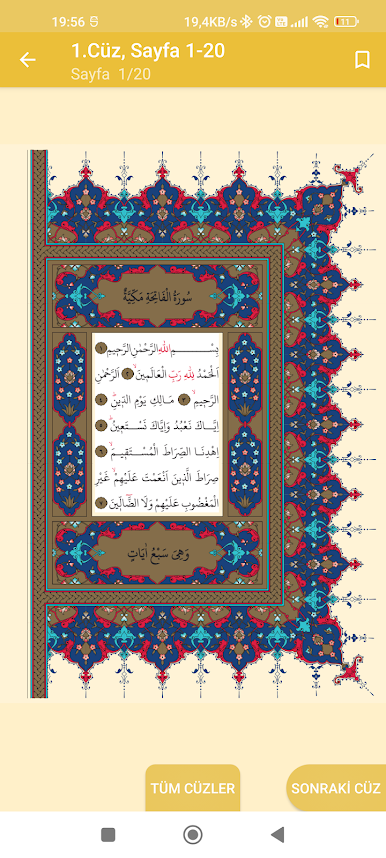 19:56
19,4KB/s
11
1.Cüz, Sayfa 1-20
Sayfa 1/20
سُورَةُ الْفَاتِحَةِ مَكِّيَّةٌ
بِسْــــمِ اللّٰهِ الرَّحْمٰنِ الرَّحٖيمِ ١
اَلْحَمْدُ لِلّٰهِ رَبِّ الْعَالَمٖينَۙ ٢ اَلرَّحْمٰنِ
الرَّحٖيمِۙ ٣ مَالِكِ يَوْمِ الدّٖينِۜ ٤
اِيَّاكَ نَعْبُدُ وَاِيَّاكَ نَسْتَعٖينُۜ ٥
اِهْدِنَا الصِّرَاطَ الْمُسْتَقٖيمَۙ ٦
صِرَاطَ الَّذٖينَ اَنْعَمْتَ عَلَيْهِمْۙ غَيْرِ
الْمَغْضُوبِ عَلَيْهِمْ وَلَا الضَّٓالّٖينَ ٧
وَهِىَ سَبْعُ اٰيَاتٍ
TÜM CÜZLER
SONRAKİ CÜZ